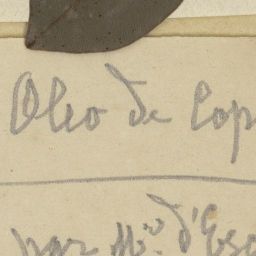 Oleo de Cop
par Mr. d'Esc